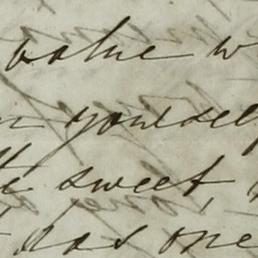 value w
yourself
sweet,
has one